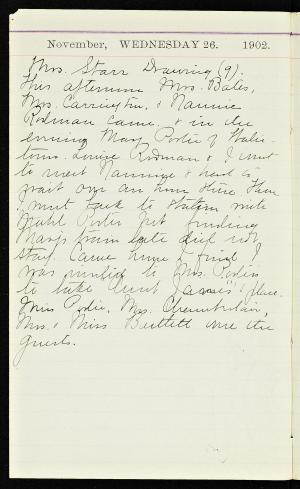 November, WEDNESDAY 26. 1902.
Mrs. Starr Drawing (9).
This afternoon Mrs. Bates,
Mrs. Carrington, & Nannie
Rodman came & in the
evening Mary Porter of Water-
town. Louise Rodman & I went
to meet Nannie & had to
wait over an hour there. Then
I went back to station with
Mabel Porter but finding
Mary's train late did not
stay. Came home & find I
was invited to Mrs. Porter's
to take Aunt place.
Miss Mrs. Chamberlain,
Mrs. & Miss Bartlett are the
guests.